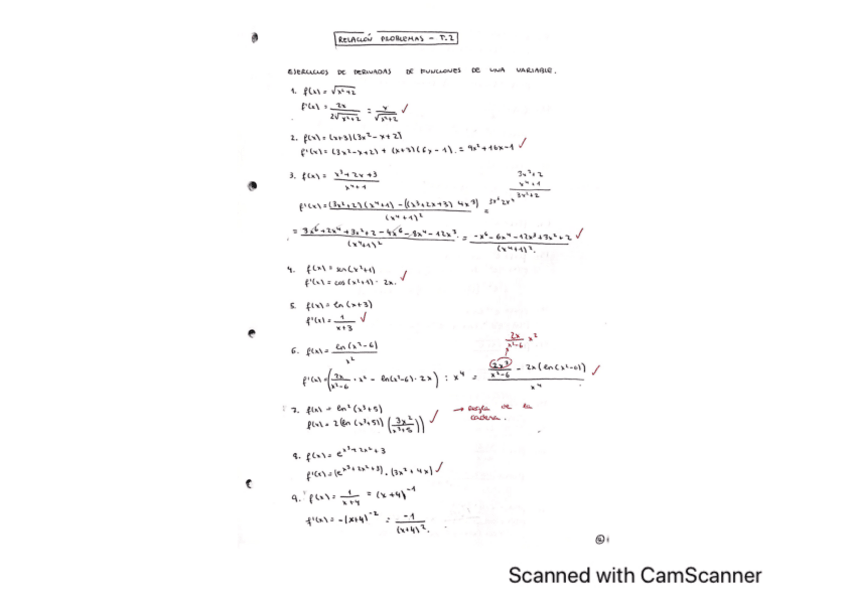 RELACIÓN PROBLEMAS - T.2
EJERCICIOS DE DERIVADAS DE FUNCIONES DE UNA VARIABLE.
1. f(x) = √x²+2
f'(x) = 2x / 2√x²+2 = x / √x²+2 ✓
2. f(x) = (x+3)(3x²-x+2)
f'(x) = (3x²-x+2) + (x+3)(6x-1) = 9x²+16x-1 ✓
3. f(x) = x³+2x+3 / x⁴+1
3x²+2
x⁴+1
3x²+2
f'(x) = (3x²+2)(x⁴+1) - ((x³+2x+3) 4x³) / (x⁴+1)² =
= 3x⁶+2x⁴+3x²+2-4x⁶-8x⁴-12x³ / (x⁴+1)² = -x⁶-6x⁴-12x³+3x²+2 / (x⁴+1)². ✓
4. f(x) = sen(x²+1)
f'(x) = cos(x²+1) · 2x. ✓
5. f(x) = ln(x+3)
f'(x) = 1 / x+3 ✓
2x / x²-6 x²
6. f(x) = ln(x²-6) / x²
f'(x) = (2x / x²-6 · x² - ln(x²-6) · 2x) : x⁴ = 2x³ / x²-6 - 2x(ln(x²-6)) / x⁴ ✓
7. f(x) = ln²(x³+5) → Regla de la
f(x) = 2(ln(x³+5)) (3x² / x³+5) ✓ cadena.
8. f(x) = e^x³+2x²+3
f'(x) = (e^x³+2x²+3) · (3x²+4x) ✓
9. f(x) = 1 / x+4 = (x+4)⁻¹
f'(x) = -(x+4)⁻² = -1 / (x+4)².
Scanned with CamScanner